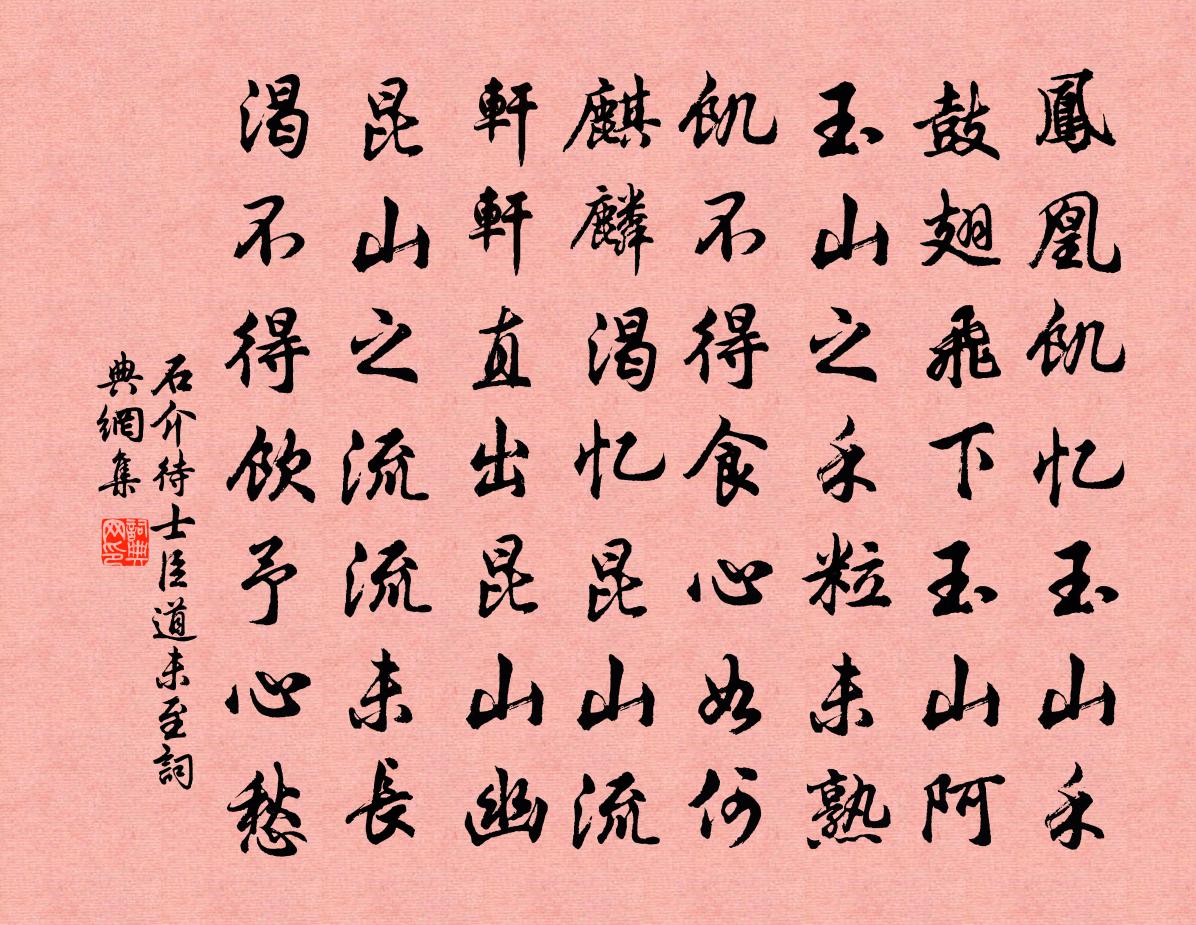 鳳凰飢忆玉山禾
鼓翅飛下玉山阿
玉山之禾粒未熟
飢不得食心如何
麒麟渴忆昆山流
軒軒直出昆山幽
昆山之流流未長
渴不得飲予心愁
石介待士臣道未至詞
典網集
詞典
网印